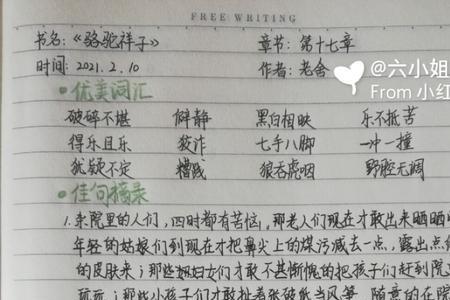 FREE WRITING
书名:《骆驼祥子》 章节:第十七章
时间:2021.2.10 作者:老舍
@六小姐
From 小红
优美词汇
破碎不堪 僻静 黑白相映 乐不抵苦
得乐且乐 狡诈 七手八脚 一冲一撞
犹疑不定 糟践 狼吞虎咽 野腔无调
佳句摘录
1.杂院里的人们,四时都有苦恼,那老人们现在才敢出来晒晒
年轻的姑娘们到现在才把鼻尖上的煤污减去一点,露出点
的皮肤来;那些妇女们才敢不甚惭愧的把孩子们赶到院
玩玩;那些小孩子们才敢扯着张破纸当风筝,随意的在院